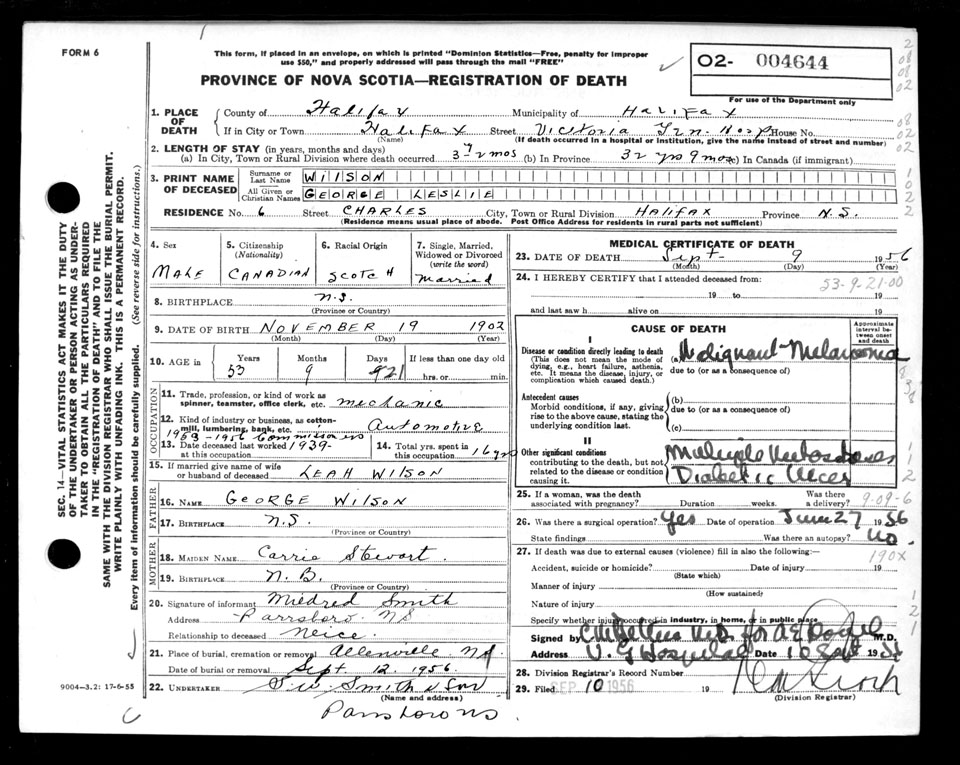 FORM 6
This form, if placed in an envelope, on which is printed "Dominion Statistics—Free, penalty for improper
use $50," and properly addressed will pass through the mail "FREE"
PROVINCE OF NOVA SCOTIA—REGISTRATION OF DEATH
O2- 004644
For use of the Department only
1. PLACE OF DEATH
County of Halifax Municipality of Halifax
If in City or Town Halifax Street Victoria Gen. Hosp House No.
(Name) (If death occurred in a hospital or institution, give the name instead of street and number)
2. LENGTH OF STAY (in years, months and days)
(a) In City, Town or Rural Division where death occurred 3 ½ mos (b) In Province 32 yrs 9 mos (c) In Canada (if immigrant)
3. PRINT NAME OF DECEASED
Surname or Last Name WILSON
All Given or Christian Names GEORGE LESLIE
RESIDENCE No. 6 Street CHARLES City, Town or Rural Division HALIFAX Province N.S.
(Residence means usual place of abode. Post Office Address for residents in rural parts not sufficient)
4. Sex
MALE
5. Citizenship (Nationality)
CANADIAN
6. Racial Origin
SCOTCH
7. Single, Married, Widowed or Divorced (write the word)
Married
8. BIRTHPLACE N.S.
(Province or Country)
9. DATE OF BIRTH NOVEMBER 19 1902
(Month) (Day) (Year)
10. AGE IN
Years Months Days If less than one day old
53 9 21 hrs. or min.
OCCUPATION
11. Trade, profession, or kind of work as spinner, teamster, office clerk, etc. mechanic
12. Kind of industry or business, as cotton-mill, lumbering, bank, etc. Automotive
1953-1956 Commissioners
13. Date deceased last worked at this occupation 1939-
14. Total yrs. spent in this occupation 16 yrs
15. If married give name of wife or husband of deceased LEAH WILSON
FATHER
16. NAME GEORGE WILSON
17. BIRTHPLACE N.S.
MOTHER
18. MAIDEN NAME Carrie Stewart
19. BIRTHPLACE N.B.
(Province or Country)
20. Signature of informant Mildred Smith
Address Parrsboro NS
Relationship to deceased Neice
21. Place of burial, cremation or removal Allenville NS
Date of burial or removal Sept. 12, 1956.
22. UNDERTAKER S.W. Smith & Son
(Name and address)
Parrsboro NS.
MEDICAL CERTIFICATE OF DEATH
23. DATE OF DEATH Sept 9 1956
(Month) (Day) (Year)
24. I HEREBY CERTIFY that I attended deceased from:
53-9-21-00
19 to 19
and last saw h alive on 19
CAUSE OF DEATH
Approximate interval between onset and death
I
Disease or condition directly leading to death (a) Malignant Melanoma
(This does not mean the mode of dying, e.g., heart failure, asthenia, etc. It means the disease, injury, or complication which caused death.)
due to (or as a consequence of)
Antecedent causes
Morbid conditions, if any, giving rise to the above cause, stating the underlying condition last.
(b)
due to (or as a consequence of)
(c)
II
Other significant conditions
contributing to the death, but not related to the disease or condition causing it.
Multiple Metastases
Diabetic Ulcer
25. If a woman, was the death associated with pregnancy? Duration weeks. Was there a delivery? 9-09-6
26. Was there a surgical operation? Yes Date of operation June 27 1956
State findings Was there an autopsy? No.
27. If death was due to external causes (violence) fill in also the following:— 190X
Accident, suicide or homicide? Date of injury 19
(State which)
Manner of injury
(How sustained)
Nature of injury
Specify whether injury occurred in industry, in home, or in public place
Signed by M.D. for M.D.
Address V. G Hospital Date 10 Sept 1956
28. Division Registrar's Record Number
29. Filed SEP 10 1956 19
(Division Registrar)
SEC. 14—VITAL STATISTICS ACT MAKES IT THE DUTY
OF THE UNDERTAKER OR PERSON ACTING AS UNDERTAKER TO OBTAIN ALL THE PARTICULARS REQUIRED
IN THE "REGISTRATION OF DEATH" AND TO FILE THE
SAME WITH THE DIVISION REGISTRAR WHO SHALL ISSUE THE BURIAL PERMIT.
WRITE PLAINLY WITH UNFADING INK. THIS IS A PERMANENT RECORD.
Every item of information should be carefully supplied. (See reverse side for instructions.)
9004—3.2: 17-6-55